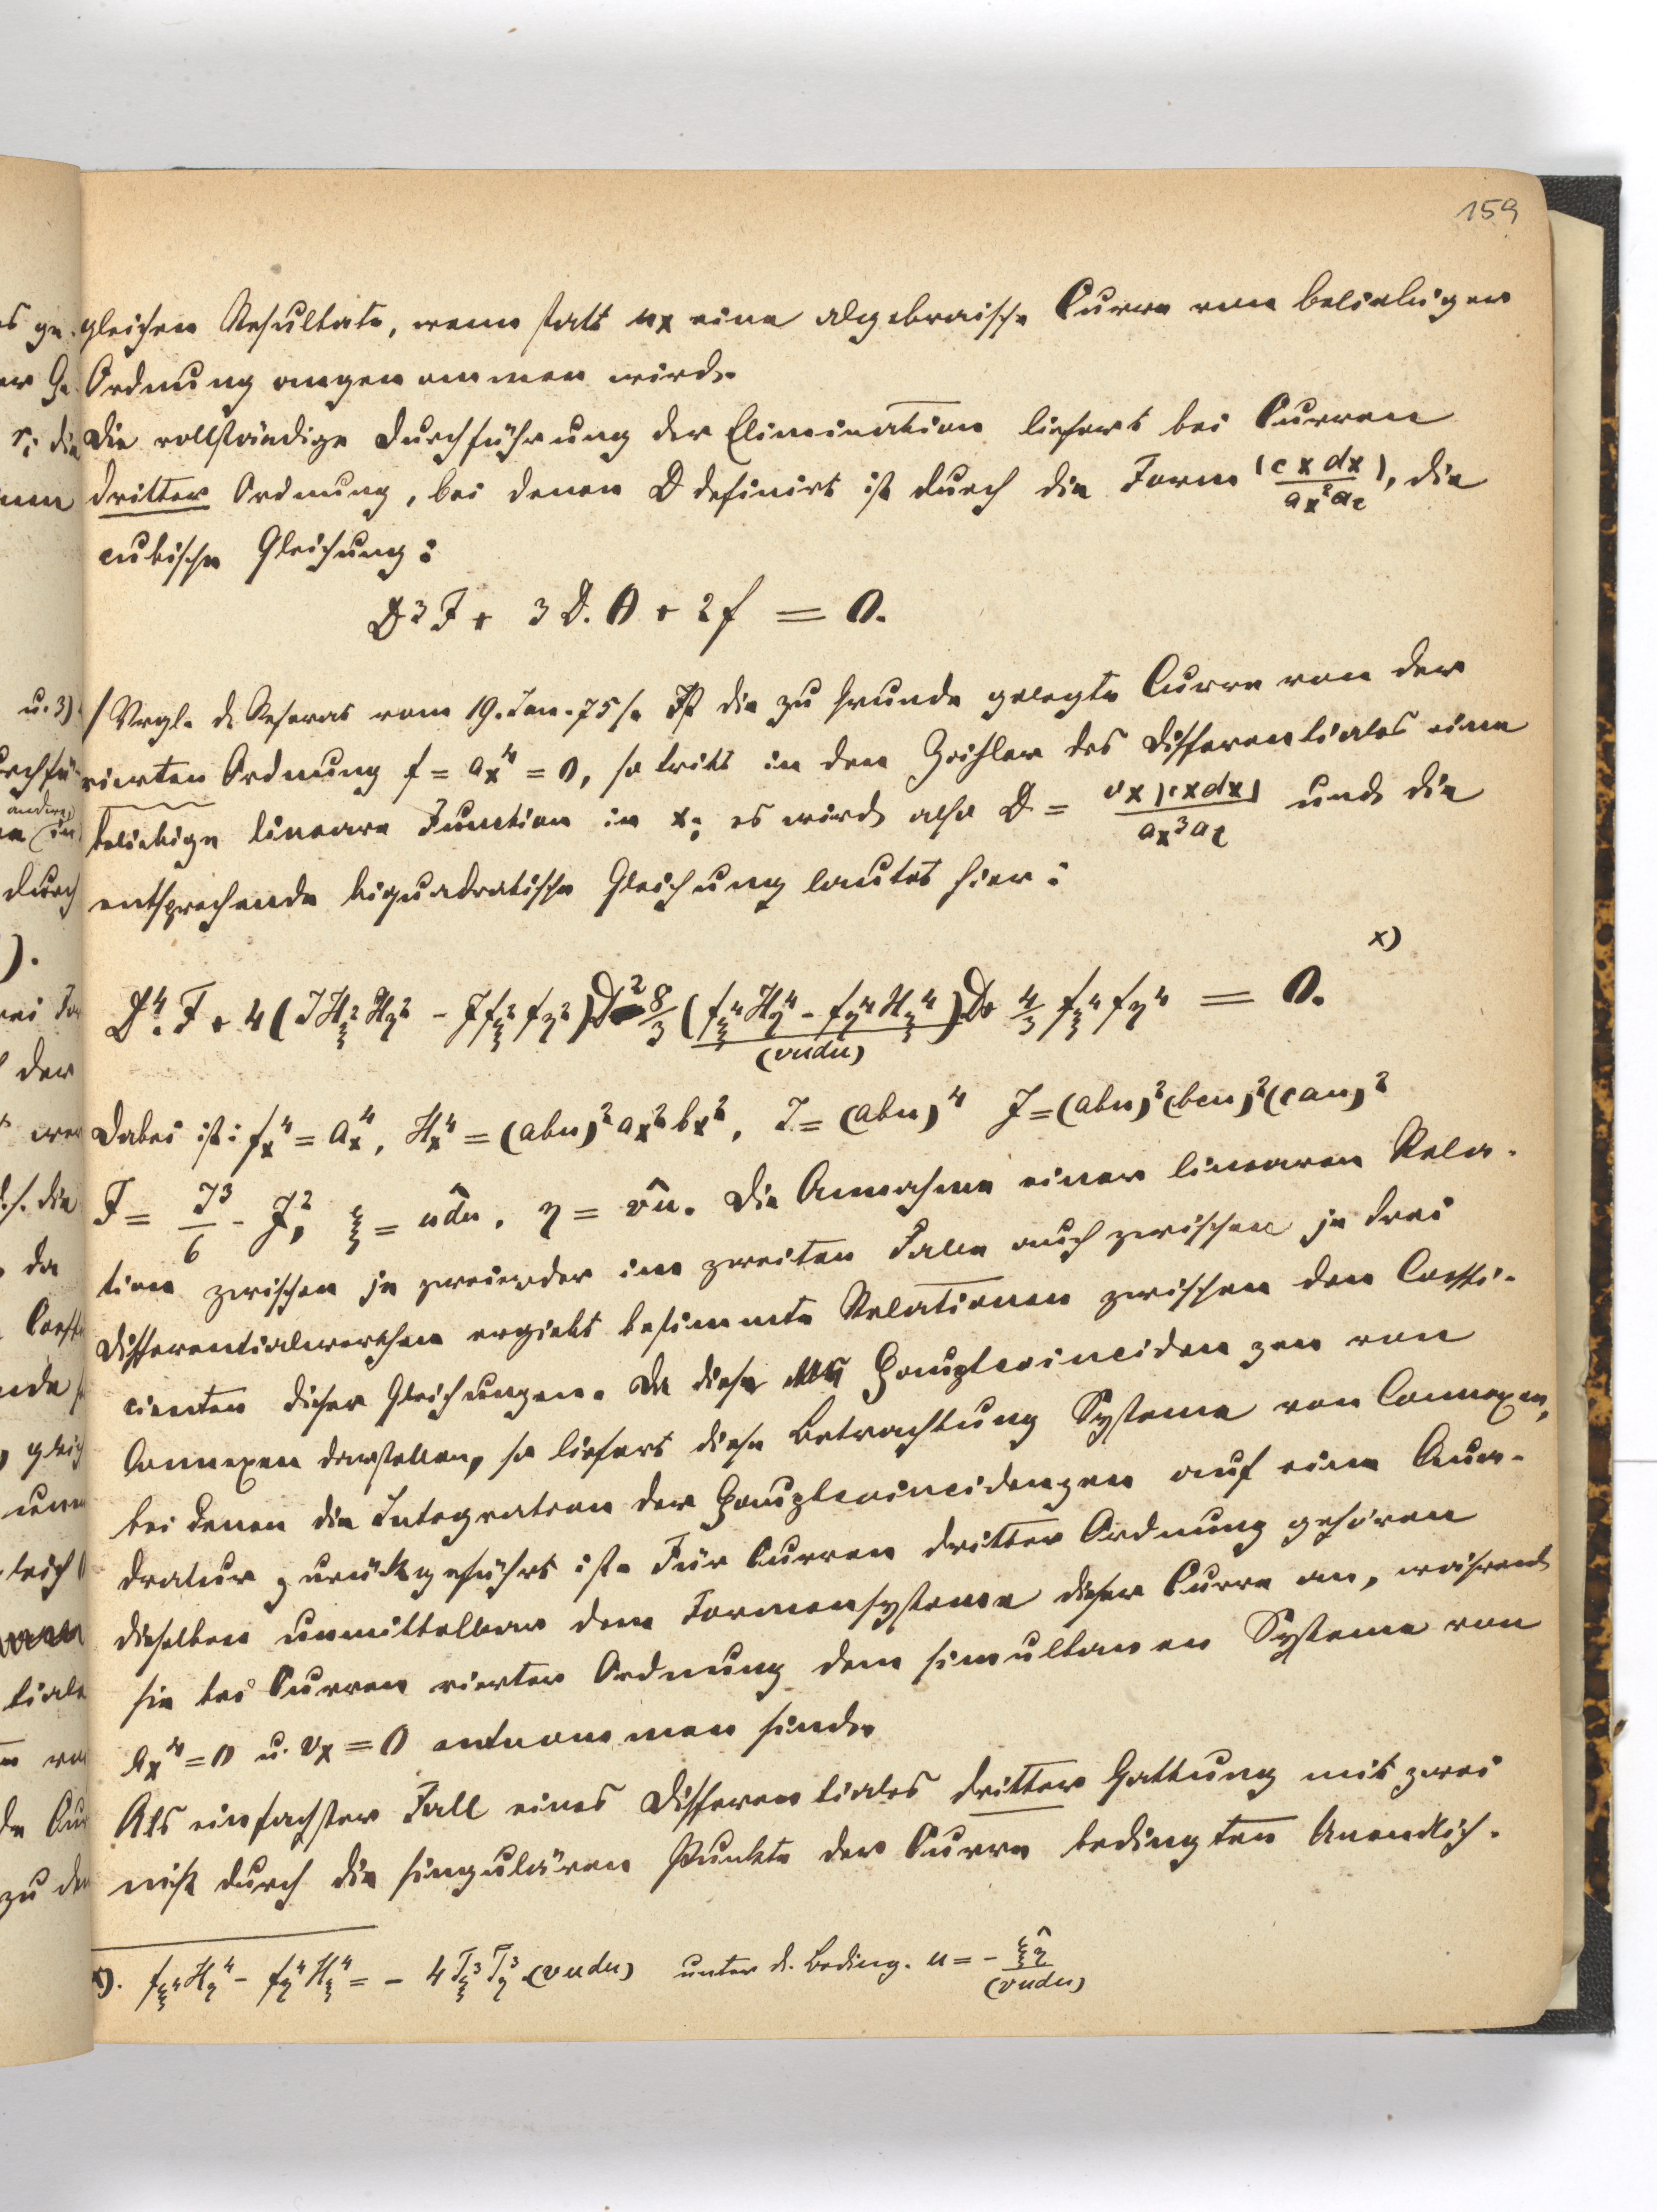 159
gleichen Resultate, wenn statt ux eine algebraische Curve von beliebiger
Ordnung angenommen wird.
Die vollständige Durchführung der Elimination liefert bei Curven
dritter Ordnung, bei denen D definirt ist durch die Form (c x dx) / ax² ac, die
cubische Gleichung:
D³ F + 3 D. Θ + 2 f = 0.
/ Vrgl. d. Referat vom 19. Jan. 75/. Ist die zu Grunde gelegte Curve von der
vierten Ordnung f = ax⁴ = 0, so tritt in den Zähler des Differentiales eine
beliebige lineare Function in x; es wird also D = vx (cxdx) / ax³ ac und die
entsprechende biquadratische Gleichung lautet hier:
x)
D⁴. F + 4 (J Hξ² Hη² - J fξ² fη²) D² - 8/3 (fξ⁴ Hη⁴ - fη⁴ Hξ⁴) D + 4/3 fξ⁴ fη⁴ = 0.
(vudu)
Dabei ist: fx⁴ = ax⁴, Hx⁴ = (abu)² ax² bx², I = (abu)⁴ J = (abu)² (bcu)² (cau)²
F = I³/6 - J², ξ = u͡du, η = v͡u. Die Annahme einer linearen Rela-
tion zwischen je zwei oder im zweiten Falle auch zwischen je drei
Differentialwerthen ergiebt bestimmte Relationen zwischen den Coeffi-
cienten dieser Gleichungen. Da diese Hauptcoincidenzen von
Connexen darstellen, so liefert diese Betrachtung Systeme von Connexen,
bei denen die Integration der Hauptcoincidenzen auf eine Qua-
dratur zurückgeführt ist. Für Curven dritter Ordnung gehören
dieselben unmittelbar dem Formensysteme dieser Curve an, während
sie bei Curven vierter Ordnung dem simultanen Systeme von
ax⁴ = 0 u. vx = 0 entnommen sind.
Als einfachster Fall eines Differentiales dritter Gattung mit zwei
nicht durch die singulären Punkte der Curve bedingten Unendlich-
x). fξ⁴ Hη⁴ - fη⁴ Hξ⁴ = - 4 Tξ³ Tη³ (vudu) unter d. Beding. u = - ξ͡η / (vudu)